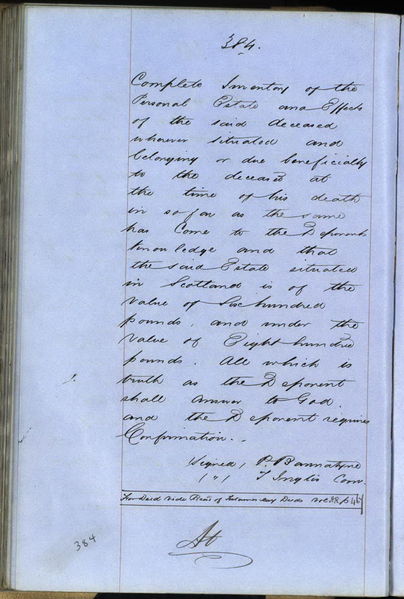 384.
Complete Inventory of the
Personal Estate and Effects
of the said deceased
wherever situated and
belonging or due beneficially
to the deceased at
the time of his death
in so far as the same
has come to the Deponents
knowledge and that
the said Estate situated
in Scotland is of the
value of Six hundred
pounds, and under the
value of Eight hundred
pounds. All which is
truth as the Deponent
shall answer to God.
and the Deponent requires
Confirmation..
Signed, P. Bannatyne
( " ) J Inglis Com.
For Deed vide Record of Deeds
384